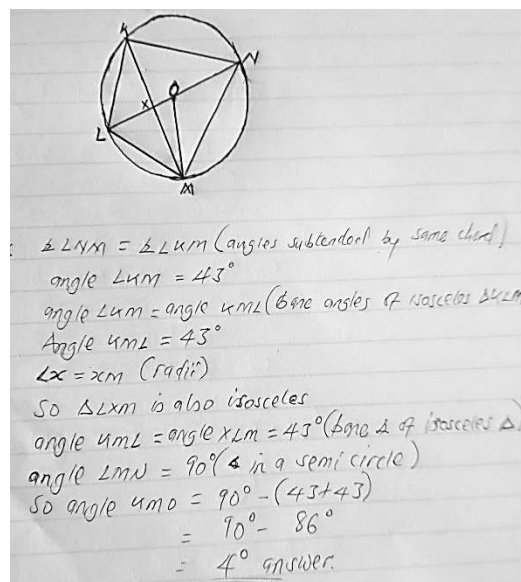 K
N
O
x
L
M
∡LNM = ∡LKM (angles subtended by same chord)
angle LKM = 43°
angle LKM = angle KML (base angles of isosceles ΔKLM
Angle KML = 43°
LX = XM (radii)
So ΔLXM is also isosceles
angle KML = angle XLM = 43° (base ∡ of isosceles Δ)
angle LMN = 90° (∡ in a semi circle)
So angle KMO = 90° - (43+43)
= 90° - 86°
= 4° answer.